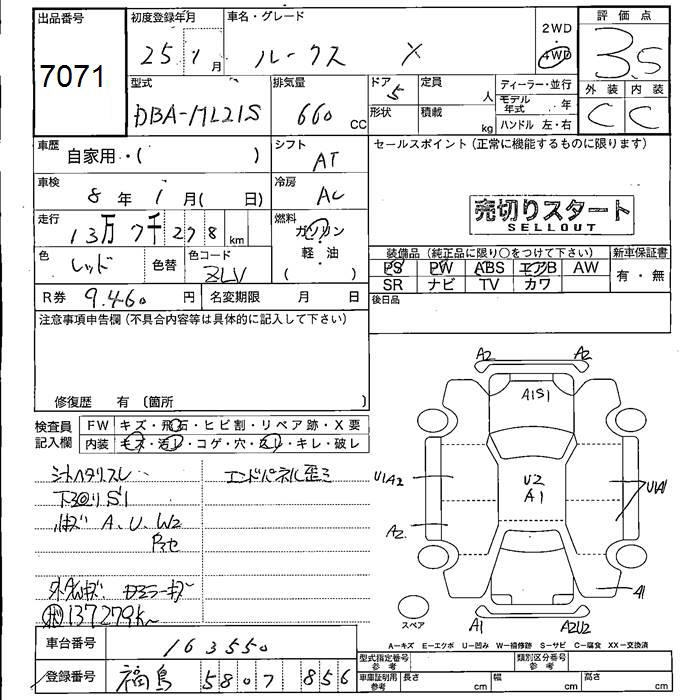 出品番号 初度登録年月 車名・グレード 2WD 評価点
7071 25年 1月 ルークス X 4WD 3.5
型式 排気量 ドア 定員 ディーラー・並行 外装 内装
DBA-ML21S 660 CC 5 人 モデル年式 年 C C
形状 積載 kg ハンドル 左・右
車歴 自家用・( ) シフト AT セールスポイント(正常に機能するものに限ります)
車検 8年 1月( 日) 冷房 AC
売切りスタート
SELLOUT
走行 13万7千278km 燃料 ガソリン 軽・油 ( )
色 レッド 色替 色コード ZLV
装備品(純正品に限り○をつけて下さい) 新車保証書
PS PW ABS エアB AW 有・無
SR ナビ TV カワ
R券 9.460円 名変期限 月 日 後日品
注意事項申告欄(不具合内容等は具体的に記入して下さい)
修復歴 有(箇所 )
検査員記入欄 FW キズ・飛石・ヒビ割・リペア跡・X要
内装 キズ・汚レ・コゲ・穴・スレ・キレ・破レ
シートヘタリスレ エンドパネル歪ミ
下回りS1
A.U.W2
137279K
A2 A2
A1S1
U1A2 U2 A1 U1A1
A2
A1
スペア A1 A2U2
A-キズ E-エクボ U-凹み W-補修跡 S-サビ C-腐食 XX-交換済
車台番号 163550
型式指定番号 参考 類別区分番号 参考
登録番号 福島 580 7 856
車庫証明用 参考 長さ cm 幅 cm 高さ cm